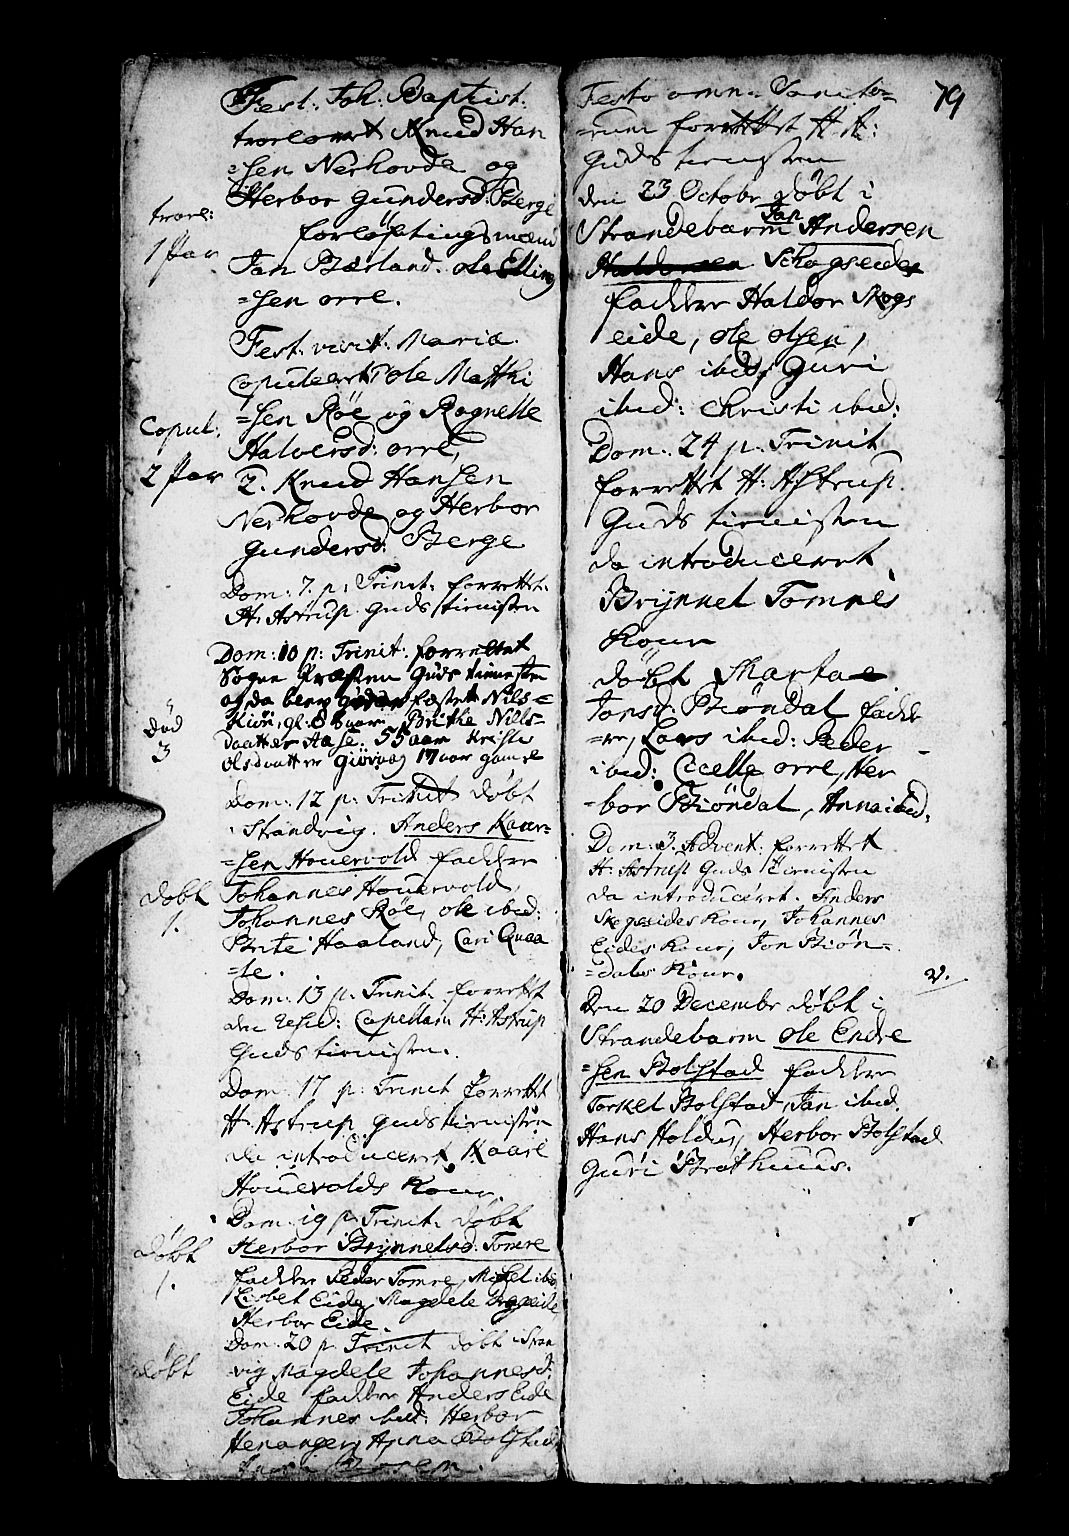 Fest: Joh: Baptist:
trorlovet Knud Han
=sen Nerhovda og
Herbor Gundersd: Berge
trorl:
forløftingsmænd
1 Par
Jan Bærland. ole Elling
=sen orre.
Fest: visit: Mariæ
Copuleert ole Matthi
=sen Røe og Rognelle
Copul:
Halversd: orre,
2 Par
2. Knud Hansen
Nerhovda og Herbor
Gundersd: Berge
Dom: 7. p: Trinit: forrettet
H: Astrup Guds tienisten
Dom: 10 p: Trinit: forrettet
Sogne Præsten Guds tienesten
og da blev fæstet Nils
gl: 8 aar Brithe Nills=
død
3
daatter Aase: 55 aar
olsdaatter 17 aar gamle
Dom: 12 p: Trinit døbt
Strandvig. Anders Kaar=
=sen Houevold fadder
døbt
1.
Johannes Houevold,
Johannes Røe, ole ibid:
Brite Haaland, Cari Quaa
=le.
Dom: 13 p: Trinit forrettet
den Capellan H: Astrup
Guds tienisten.
Dom: 17 p: Trinit forrettet
H: Astrup Guds tienisten
da introduceret Kaare
Houevolds Kone.
Dom: 19 p: Trinit: døbt
døbt
1.
Herbor Brynnelsd: Tomre
fadder Peder Tomre, Mickel ibid
Lisbet Eide, Magdele
Herbor Eide.
Dom: 20 p: Trinit døbt i Stran
døbt
vig Magdele Johannesd:
Eide fadder Anders Eide
Johannes ibid: Herbor
Henanger, Anna Bolstad
79
Festo omn: Sancto=
=rum forrettet H: A:
Guds tienisten
den 23 Octobr døbt i
Jan
Strandebarm Andersen
Haldorsen Schogseide
fadder Haldor Skogs
eide, ole olsen,
Hans ibid, Guri
ibid: Christi ibid:
Dom: 24 p: Trinit
forrettet H: Astrup.
Guds tienisten
da introduceret
Brynnel Tomres
Kone
døbt Marta
Jonsd: Biøndal fadde
=re, Lars ibid: Peder
ibid: Cicelle orre, Her
=bor Biøndal, Anna ibid.
Dom: 3. Advent: forrettet
H: Astrup Guds tienisten
da introduceret. Anders
Skogseides Kone, Johannes
Eides Kone, Jon Biøn=
=dals Kone.
v.
Den 20 Decembr døbt i
Strandebarm ole Endre
=sen Bolstad fadder
Torkel Bolstad, Jan ibid.
Hans Holdus, Herbor Bolstad
Guri Brathuus.